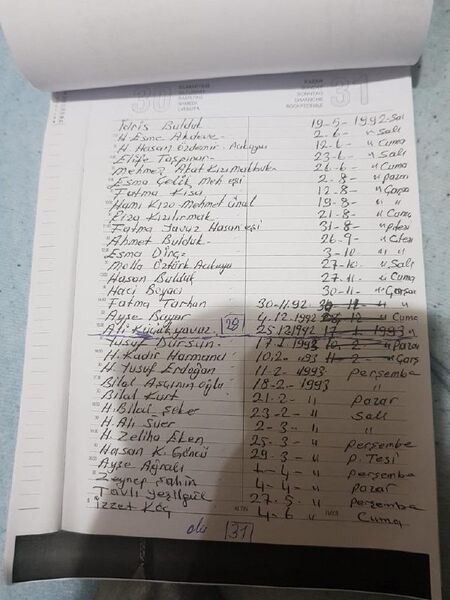 30 31
İdris Bulduk 19-5-1992-Salı
H. Esme Akdeve 2-6- " Salı
H. Hasan Özdemir- 12-6- " Cuma
Elife Taşpınar 23-6- " Salı
Mehmet 26-6- " Cuma
Esma Çelik Meh eşi 2-8- " pazar
Fatma Kısa 12-8- " Çarşa
Hami Kızo-Mehmet ünal 19-8- " "
Kızılırmak 21-8- " Cuma
Fatma Yavuz Hasan eşi 31-8- " p.tesi
Ahmet Bulduk 26-9- " C.tesi
Esma Dinç 3-10 " "
Molla Öztürk 27-10- " Salı
Hasan Bulduk 27-11- " Cuma
Haci Boyacı 30-11- " Çarşan
Fatma Turhan 30-11-92 "
Ayşe Bayar 4-12-1992 12 " Cuma
Ali Küçük yavuz 29 25-12 1992 17-1-1993
Yusuf Dursun 17-1-1993 10-2- " Pazar
H. Kadir Harmancı 10-2- 1993 11-2- " Çarş
H. Yusuf Erdoğan 11-2- 1993 perşembe
Bilal 18-2-1993 "
Bilal Kurt 21-2- " Pazar
H. Bilal Şeker 23-2- " Salı
H. Ali Suer 2-3- " "
H. Zeliha Eken 25-3- " perşembe
Hasan K. Göncü 29-3- " P. Tesi
Ayşe Ağralı 1-4- " perşembe
Zeynep Şahin 4-4- " pazar
Yeşilgül 27-5- " perşembe
İzzet Koç 4-6 " Cuma
31